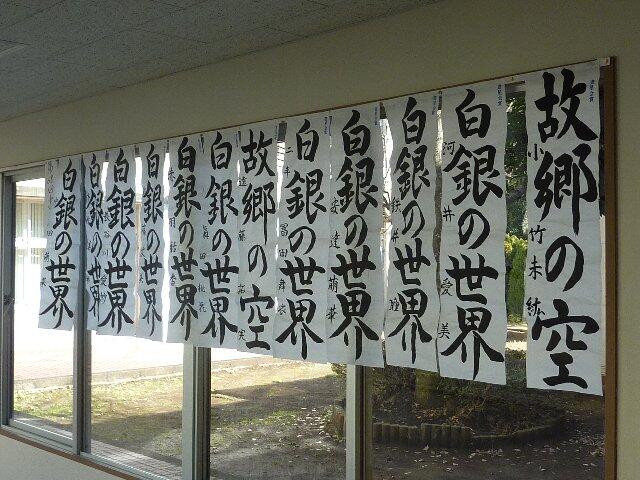 故郷の空
小竹未紘
白銀の世界
河井愛美
白銀の世界
鉄井瞳
白銀の世界
安達萌華
白銀の世界
二年 冨田舞衣
故郷の空
遠藤
白銀の世界
眞田桃花
白銀の世界
白銀の世界
白銀の世界
白銀の世界
白銀の世界